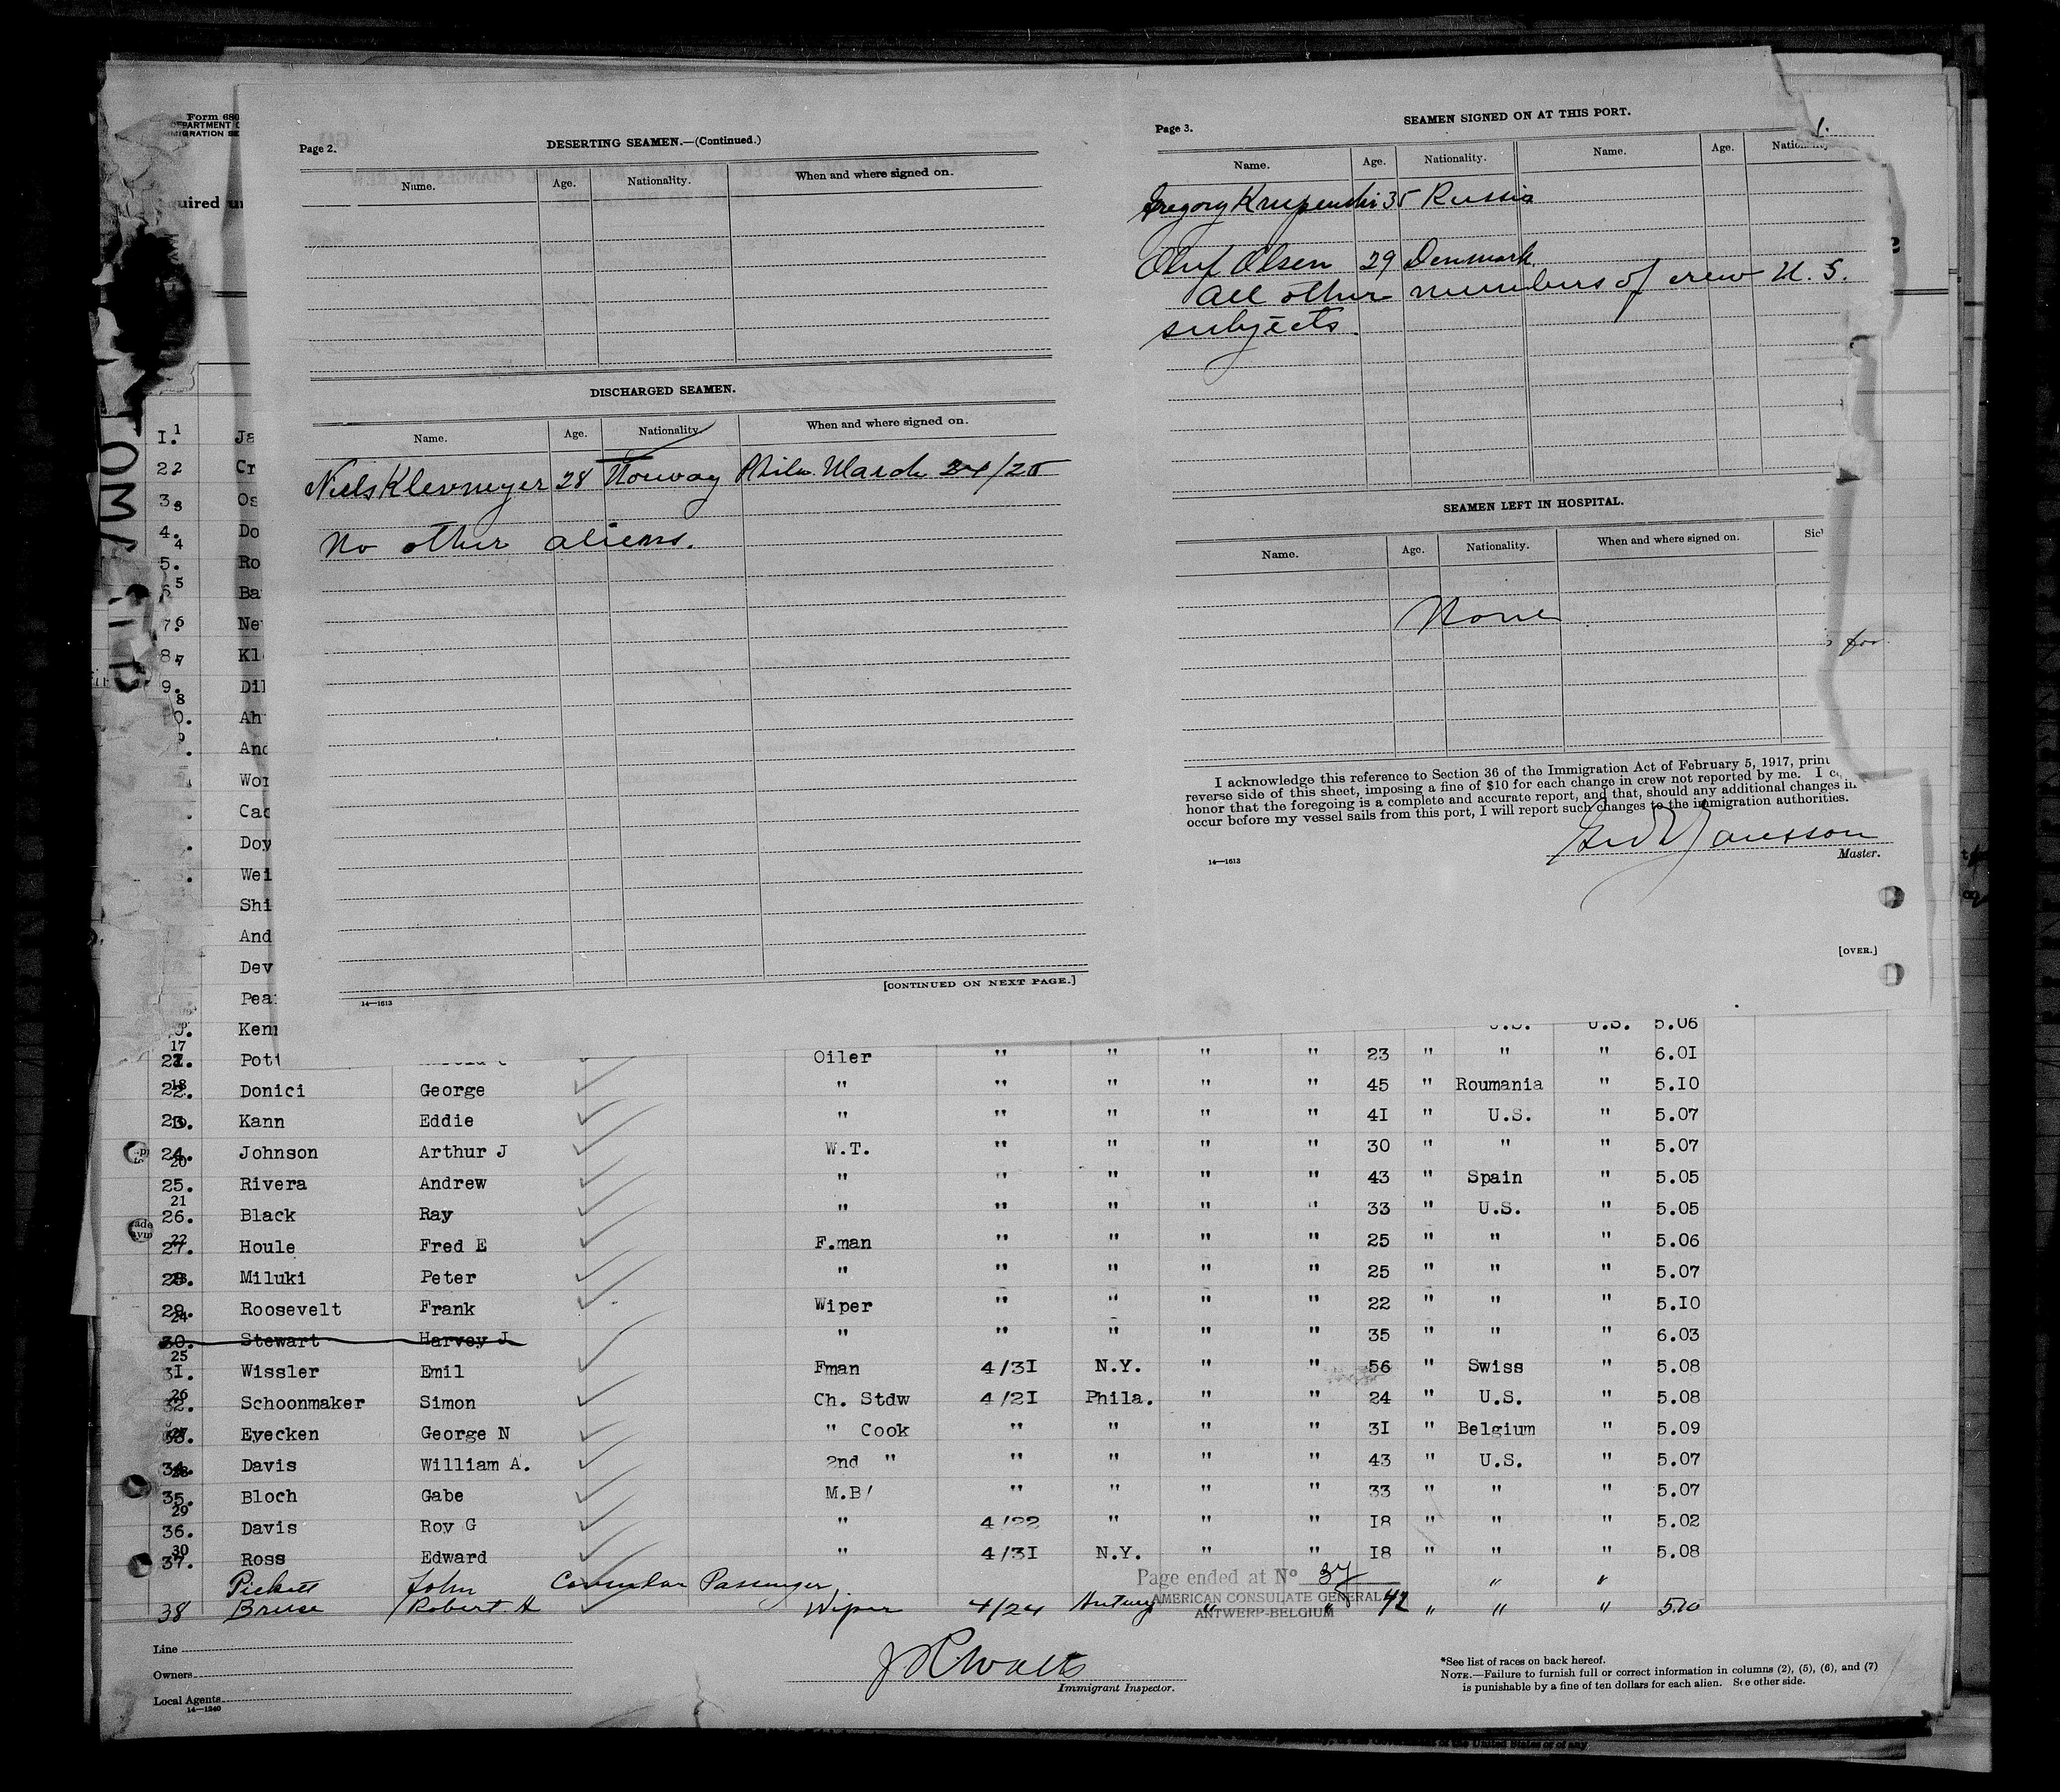 Form 680
DEPARTMENT O
IMMIGRATION SE
quired un
Page 2.
DESERTING SEAMEN.—(Continued.)
Name. Age. Nationality. When and where signed on.
DISCHARGED SEAMEN.
Name. Age. Nationality. When and where signed on.
Niels Klevmeyer 28 Norway Phila. March 24/25
No other aliens.
[CONTINUED ON NEXT PAGE.]
14—1613
Page 3.
SEAMEN SIGNED ON AT THIS PORT.
1.
Name. Age. Nationality. Name. Age. Nationality
Gregory Krupenski 35 Russia
Oluf Olsen 29 Denmark
All other members of crew U.S.
subjects.
SEAMEN LEFT IN HOSPITAL.
Name. Age. Nationality. When and where signed on. Sic
None
s for
I acknowledge this reference to Section 36 of the Immigration Act of February 5, 1917, print
reverse side of this sheet, imposing a fine of $10 for each change in crew not reported by me. I c
honor that the foregoing is a complete and accurate report, and that, should any additional changes in
occur before my vessel sails from this port, I will report such changes to the immigration authorities.
Jansson
Master.
14—1613
[OVER.]
I. 1 Ja
2 2 Cr
3 Os
4. 4 Do
5. Ro
6 5 Ba
7. 6 Ne
8. 7 Kl
9. Dil
8
0. Ah
9
And
Wor
Cac
Doy
Wei
Shi
And
Dev
Pea
Kenn U.S. U.S. 5.06
17
21. Pott Oiler " " " " 23 " " " 6.0I
18
22. Donici George " " " " " 45 " Roumania " 5.I0
23. Kann Eddie " " " " " 4I " U.S. " 5.07
24. Johnson Arthur J W.T. " " " " 30 " " " 5.07
20
25. Rivera Andrew " " " " " 43 " Spain " 5.05
21
26. Black Ray " " " " " 33 " U.S. " 5.05
22
27. Houle Fred E F.man " " " " 25 " " " 5.06
28. Miluki Peter " " " " " 25 " " " 5.07
29. Roosevelt Frank Wiper " " " " 22 " " " 5.I0
24
30. Stewart Harvey J " " " " " 35 " " " 6.03
25
3I. Wissler Emil Fman 4/3I N.Y. " " 56 " Swiss " 5.08
26
32. Schoonmaker Simon Ch. Stdw 4/2I Phila. " " 24 " U.S. " 5.08
33. Eyecken George N " Cook " " " " 3I " Belgium " 5.09
34. Davis William A. 2nd " " " " " 43 " U.S. " 5.07
28
35. Bloch Gabe M.B. " " " " 33 " " " 5.07
29
36. Davis Roy G " 4/22 " " " I8 " " " 5.02
30
37. Ross Edward " 4/3I N.Y. " " I8 " " " 5.08
Pickett John Consular Passenger. " "
Page ended at No 37
AMERICAN CONSULATE GENERAL
ANTWERP-BELGIUM
38 Bruse Robert A Wiper 4/24 Antwp " " 42 " " " 5.10
Line
Owners
Local Agents
14—1240
Immigrant Inspector.
*See list of races on back hereof.
NOTE.—Failure to furnish full or correct information in columns (2), (5), (6), and (7)
is punishable by a fine of ten dollars for each alien. See other side.